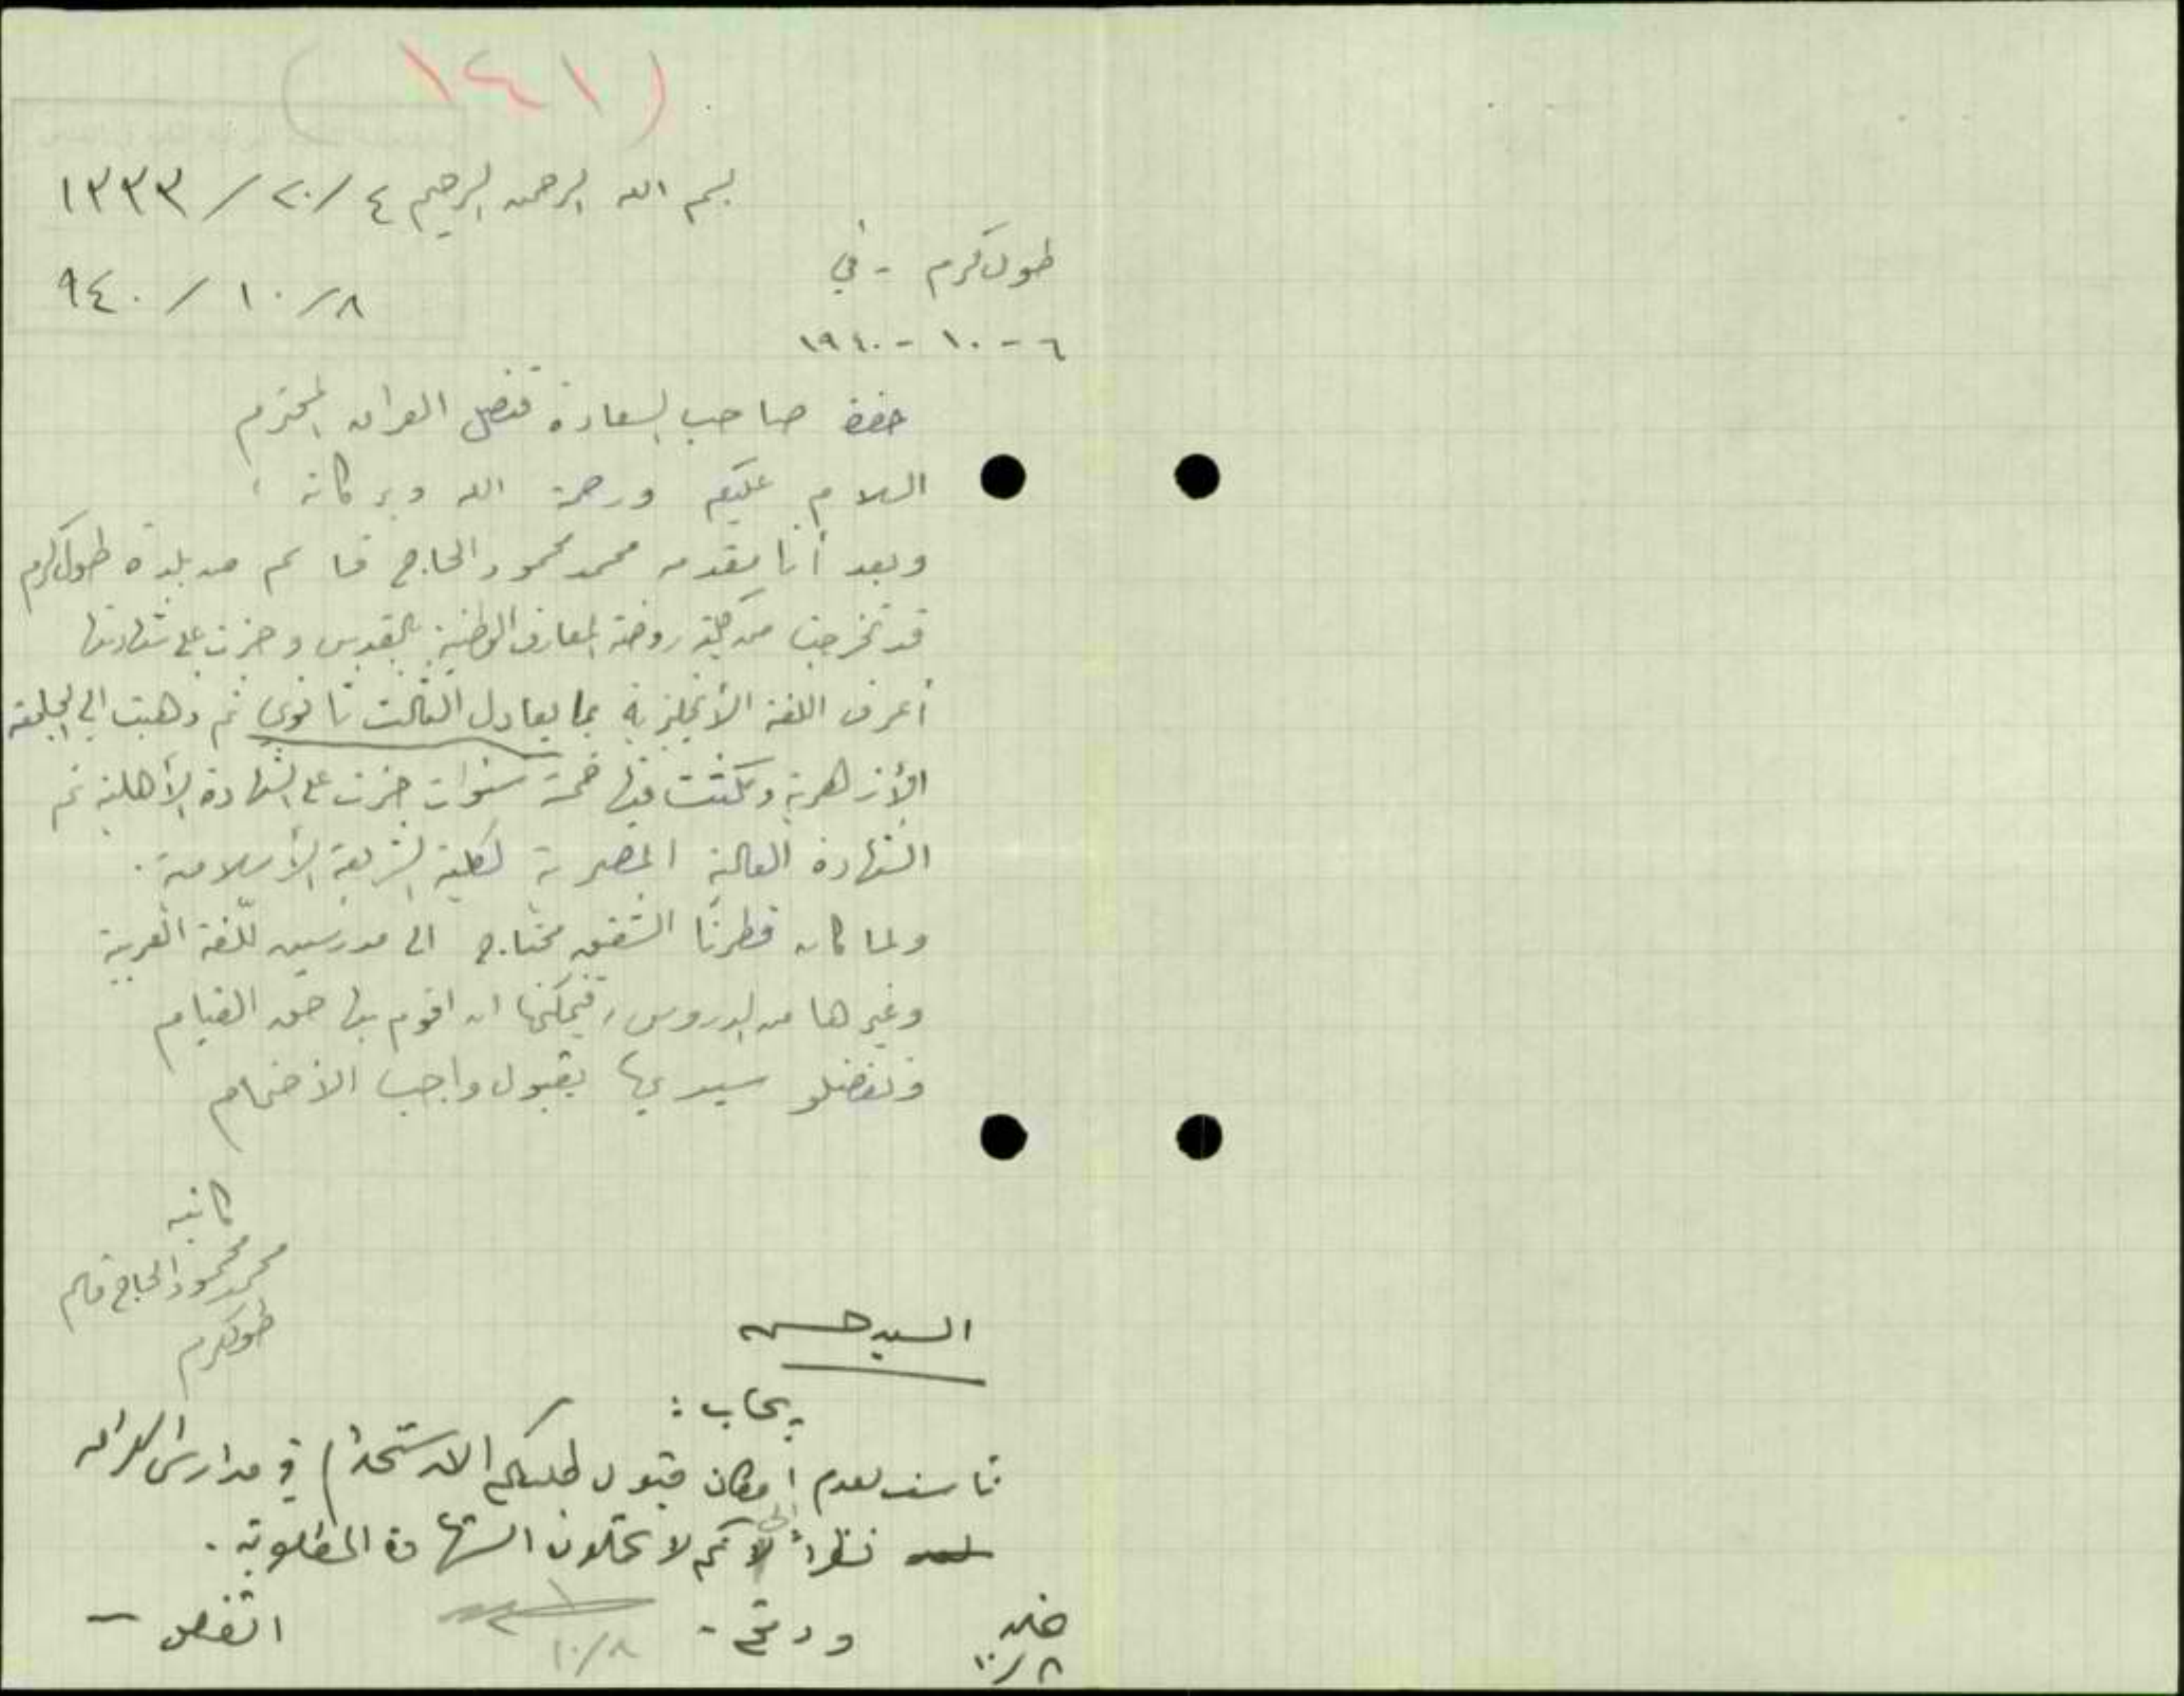 (١٤١)
بسم الله الرحمن الرحيم ٢٠/٤/١٣٣٣
طولكرم - في
٩٤٠/١٠/٨
٦-١٠-١٩٤٠
صاحب السعادة قنصل العراق المحترم
السلام عليكم ورحمة الله وبركاته ؛
وبعد أنا مقدمه محمد محمود الحاج قاسم من بلدة طولكرم
قد تخرجت من كلية روضة المعارف الوطنية بالقدس وحزت على شهادتها
أعرف اللغة الأنجليزية بما يعادل الثالث ثانوي ثم ذهبت الى الجامعة
الأزهرية ومكثت فيها خمسة سنوات حزت على الشهادة الأهلية ثم
الشهادة العالية المصرية لكلية الشريعة الأسلامية .
ولما كان قطرنا الشقيق محتاج الى مدرسين للغة العربية
وغيرها من الدروس، فيمكننا ان اقوم بها حق القيام
وتفضلو سيدي بقبول واجب الأحترام
كاتبه
محمد محمود الحاج قاسم
طولكرم
السيد حسن
يجاب :
نأسف لعدم امكان قبول طلبكم الاستخدام في مدارس العراق
نظراً لأنكم لا تحملون الشهادة المطلوبة .
ودمتم - القنصل -
١٠/٨
١٠/٨